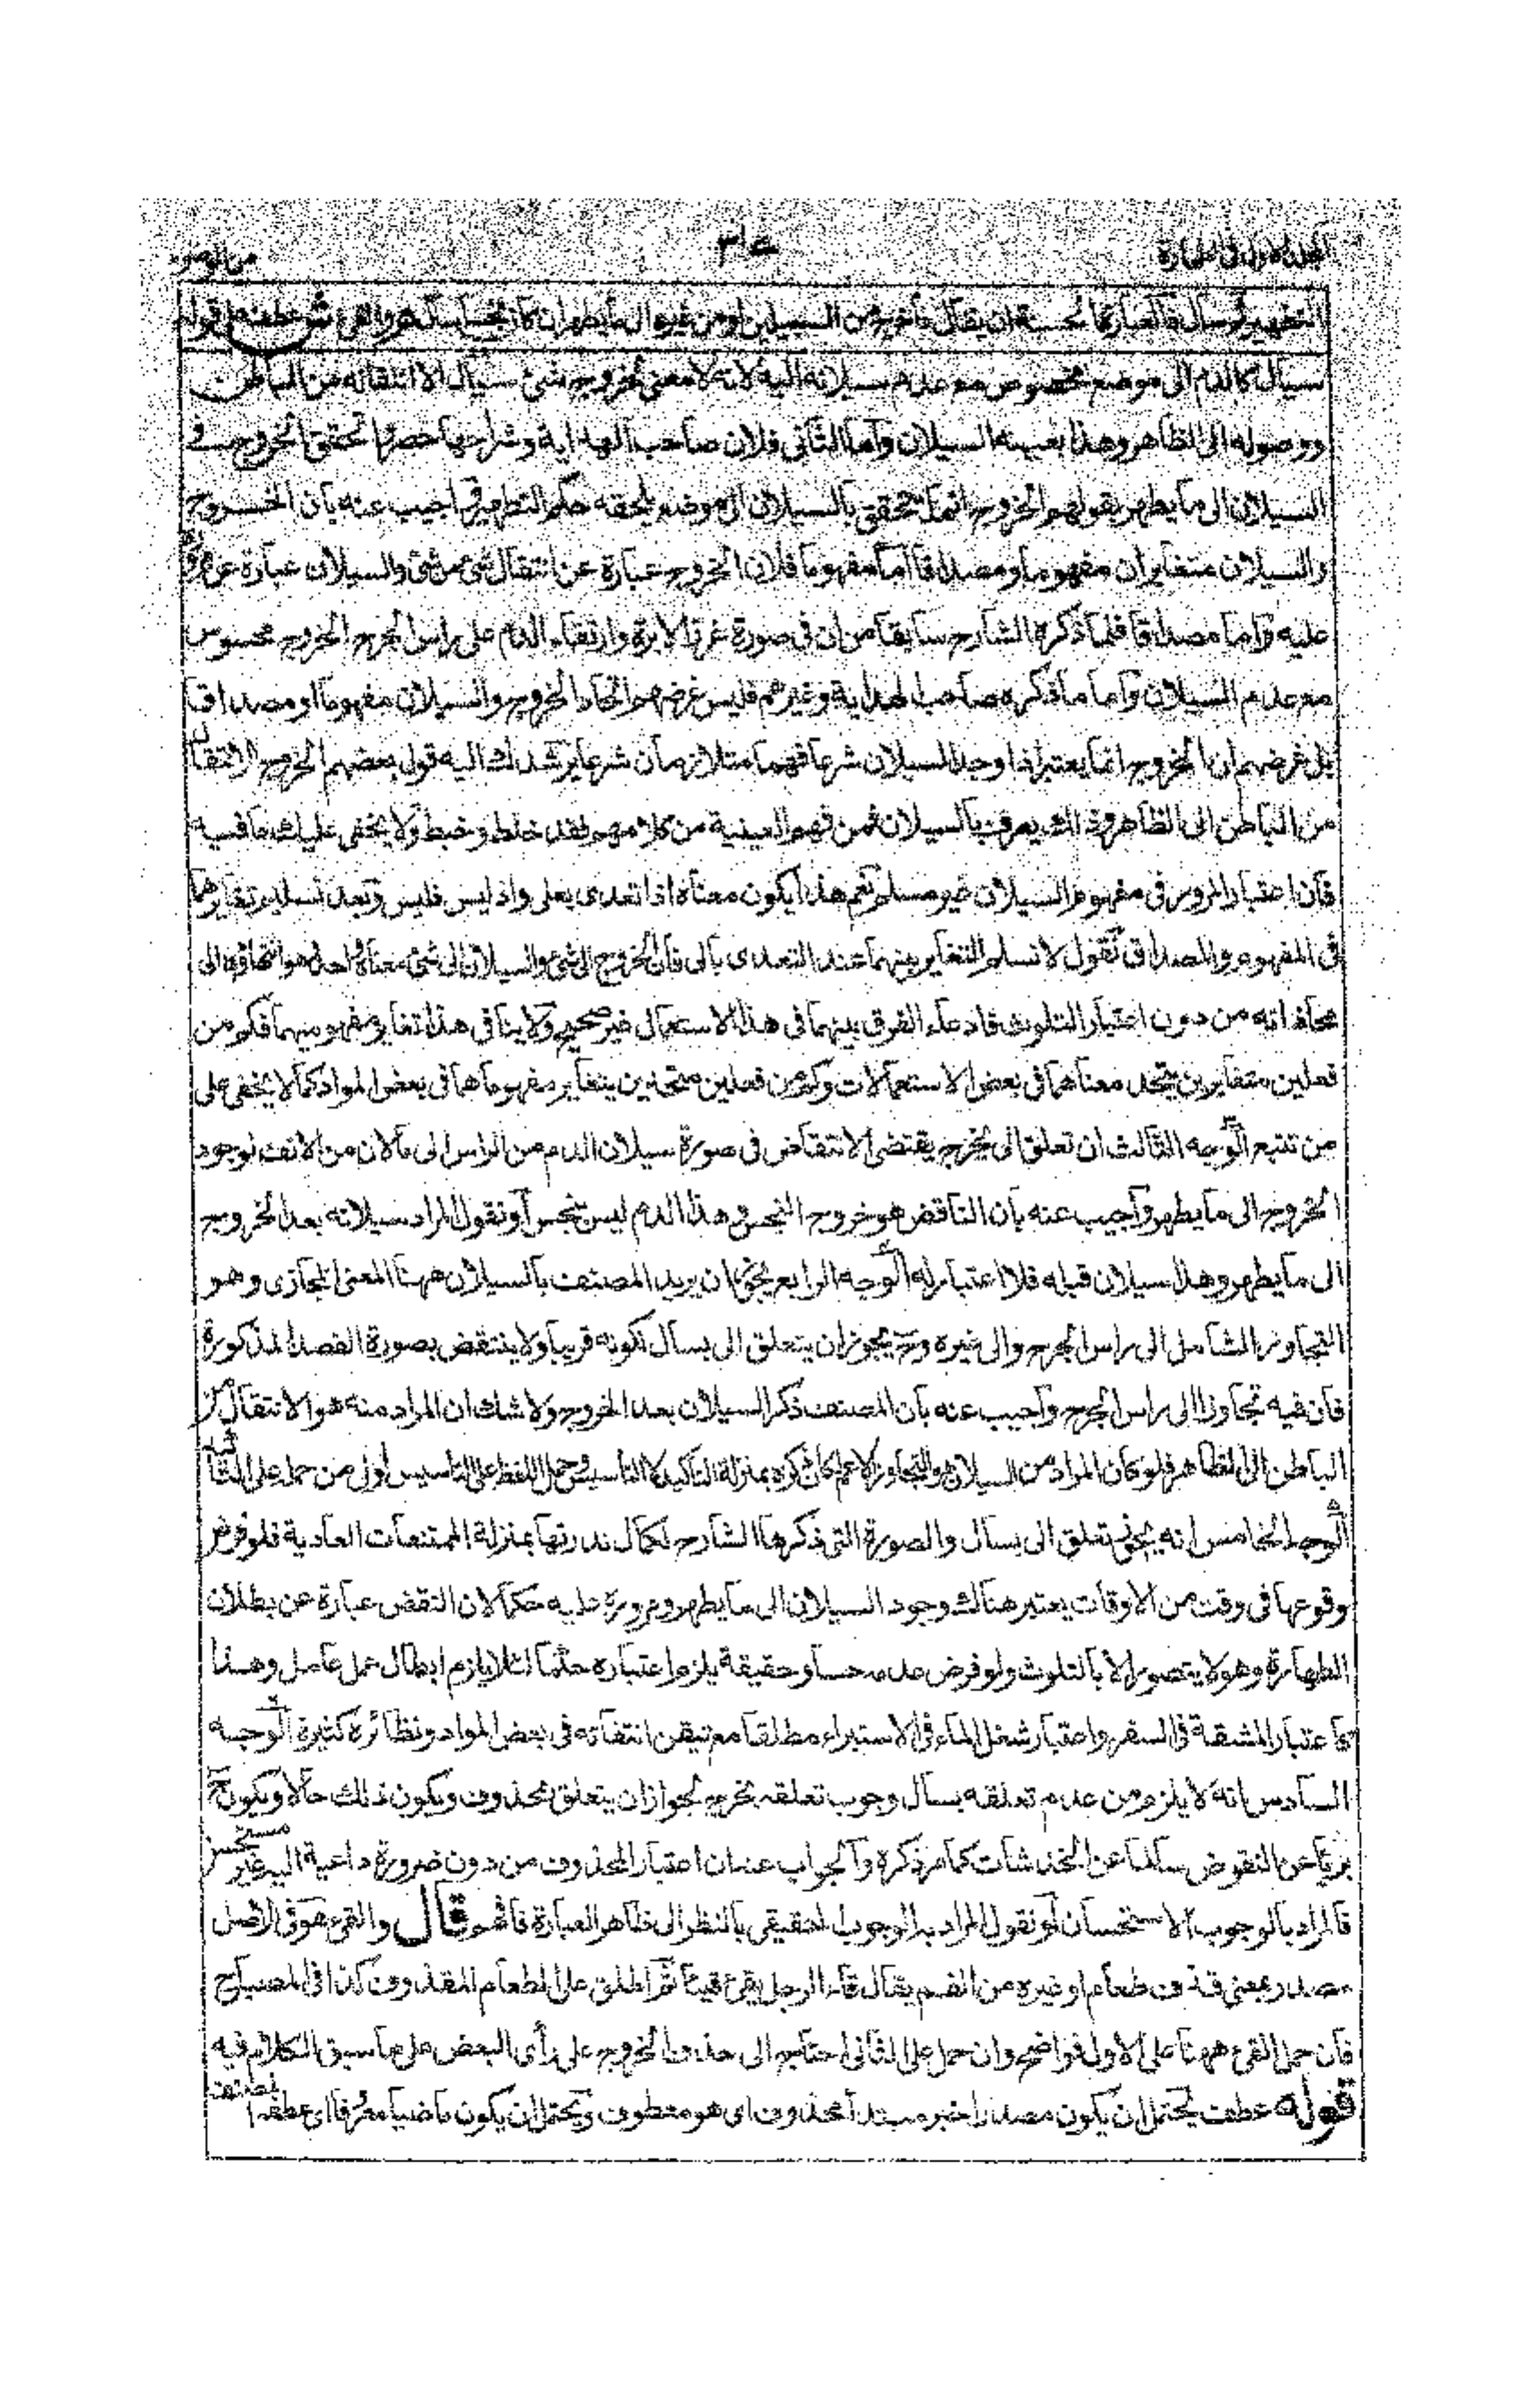 من الوضوء
التطهير لو سال فالعبارة الحسنة ان يقال ما خرج من السبيلين او من غيره الى ما يطهر ان كان نجسا سال هو والقئ شرح عطف على قوله
سيال كالدم الى موضع مخصوص مع عدم سيلانه اليه لانه لا معنى لخروج شئ سيال الا انتقاله من الباطن
ووصوله الى الظاهر وهذا بعينه السيلان وآما الثاني فلان صاحب الهداية وشراحها حصروا تحقق الخروج في
السيلان الى ما يطهر بقولهم الخروج انما يتحقق بالسيلان الى موضع يلحقه حكم التطهير اجيب عنه بان الخروج
والسيلان متغايران مفهوما ومصداقا آما مفهوما فلان الخروج عبارة عن انتقال شئ من شئ والسيلان عبارة عن مروره
عليه وآما مصداقا فلما ذكره الشارح سابقا من ان في صورة غرز الابرة وارتقاء الدم على راس الجرح الخروج محسوس
مع عدم السيلان وآما ما ذكره صاحب الهداية وغيرهم فليس غرضهم اتحاد الخروج والسيلان مفهوما او مصداقا
بل غرضهم ان الخروج انما يعتبر اذا وجد السيلان شرعا فهما متلازمان شرعا يرشدك اليه قول بعضهم الخروج الانتقال
من الباطن الى الظاهر وذلك يعرف بالسيلان فمن فهم العينية من كلامهم فقد خلط وخبط ولا يخفى عليك ما فيه
فان اعتبار المرور في مفهوم السيلان غير مسلم نعم هذا يكون معناه اذا تعدى بعلى واذ ليس فليس وبعد تسليم تغايرهما
في المفهوم والمصداق نقول لا نسلم التغاير بينهما عند التعدى بالى فان الخروج الى شئ والسيلان الى شئ معناه واحد هو انتقاله الى
محاذاته من دون اعتبار التلوث فادعاء الفرق بينهما في هذا الاستعمال غير صحيح ولا ينافي هذا تغاير مفهوميهما فكم من
فعلين متغايرين يتحد معناهما في بعض الاستعمالات وكم من فعلين متحدين يتغاير مفهوماهما في بعض المواد كما لا يخفى على
من تتبع الوجه الثالث ان تعلق الى بخرج يقتضى الانتقاض في صورة سيلان الدم من الراس الى ما لان من الانف لوجود
الخروج الى ما يطهر وآجيب عنه بان الناقض هو خروج النجس وهذا الدم ليس بنجس آو نقول المراد سيلانه بعد الخروج
الى ما يطهر وهذا سيلان قبله فلا اعتبار له الوجه الرابع يجوز ان يريد المصنف بالسيلان ههنا المعنى المجازى وهو
التجاوز الشامل الى راس الجرح والى غيره وح يجوز ان يتعلق الى بسال لكونه قريبا ولا ينتقض بصورة الفصد المذكورة
فان فيه تجاوزا الى راس الجرح وآجيب عنه بان المصنف ذكر السيلان بعد الخروج ولا شك ان المراد منه هو الانتقال من
الباطن الى الظاهر فلو كان المراد من السيلان هو التجاوز الاعم كان ذكره بمنزلة التاكيد لا التاسيس وحمل اللفظ على التاسيس اولى من حمله على التاكيد
الوجه الخامس انه يجوز تعلق الى بسال والصورة التي ذكرها الشارح لكمال ندرتها بمنزلة الممتنعات العادية فلو فرض
وقوعها في وقت من الاوقات يعتبر هنالك وجود السيلان الى ما يطهر ومروره عليه حكما لان النقض عبارة عن بطلان
الطهارة وهو لا يتصور الا بالتلوث ولو فرض عدمه حسا وحقيقة يلزم اعتباره حكما لئلا يلزم ابطال عمل عامل وهذا
كاعتبار المشقة في السفر واعتبار شغل الماء في الاستبراء مطلقا مع تيقن انتفائه في بعض المواد ونظائره كثيرة الوجه
السادس انه لا يلزم من عدم تعلقه بسال وجوب تعلقه بخرج لجواز ان يتعلق بمحذوف ويكون ذلك حالا ويكون ح
بريا عن النقوض سالما عن الخدشات كما مر ذكره وآلجواب عنه ان اعتبار المحذوف من دون ضرورة داعية اليه غير مستحسن
فالمراد بالوجوب الاستحسان آو نقول المراد به الوجوب الحقيقي بالنظر الى ظاهر العبارة فافهم قال والقئ هو في الاصل
مصدر بمعنى قذف طعام او غيره من الفم يقال قاء الرجل يقئ قيئا ثم اطلق على الطعام المقذوف كذا في المصباح
فان حمل القئ ههنا على الاول فواضح وان حمل على الثاني احتاج الى حذف الخروج على رأى البعض على ما سبق الكلام فيه
قوله عطف يحتمل ان يكون مصدرا خبر مبتدأ محذوف اى هو معطوف ويحتمل ان يكون ماضيا معروفا اى عطفه المصنف